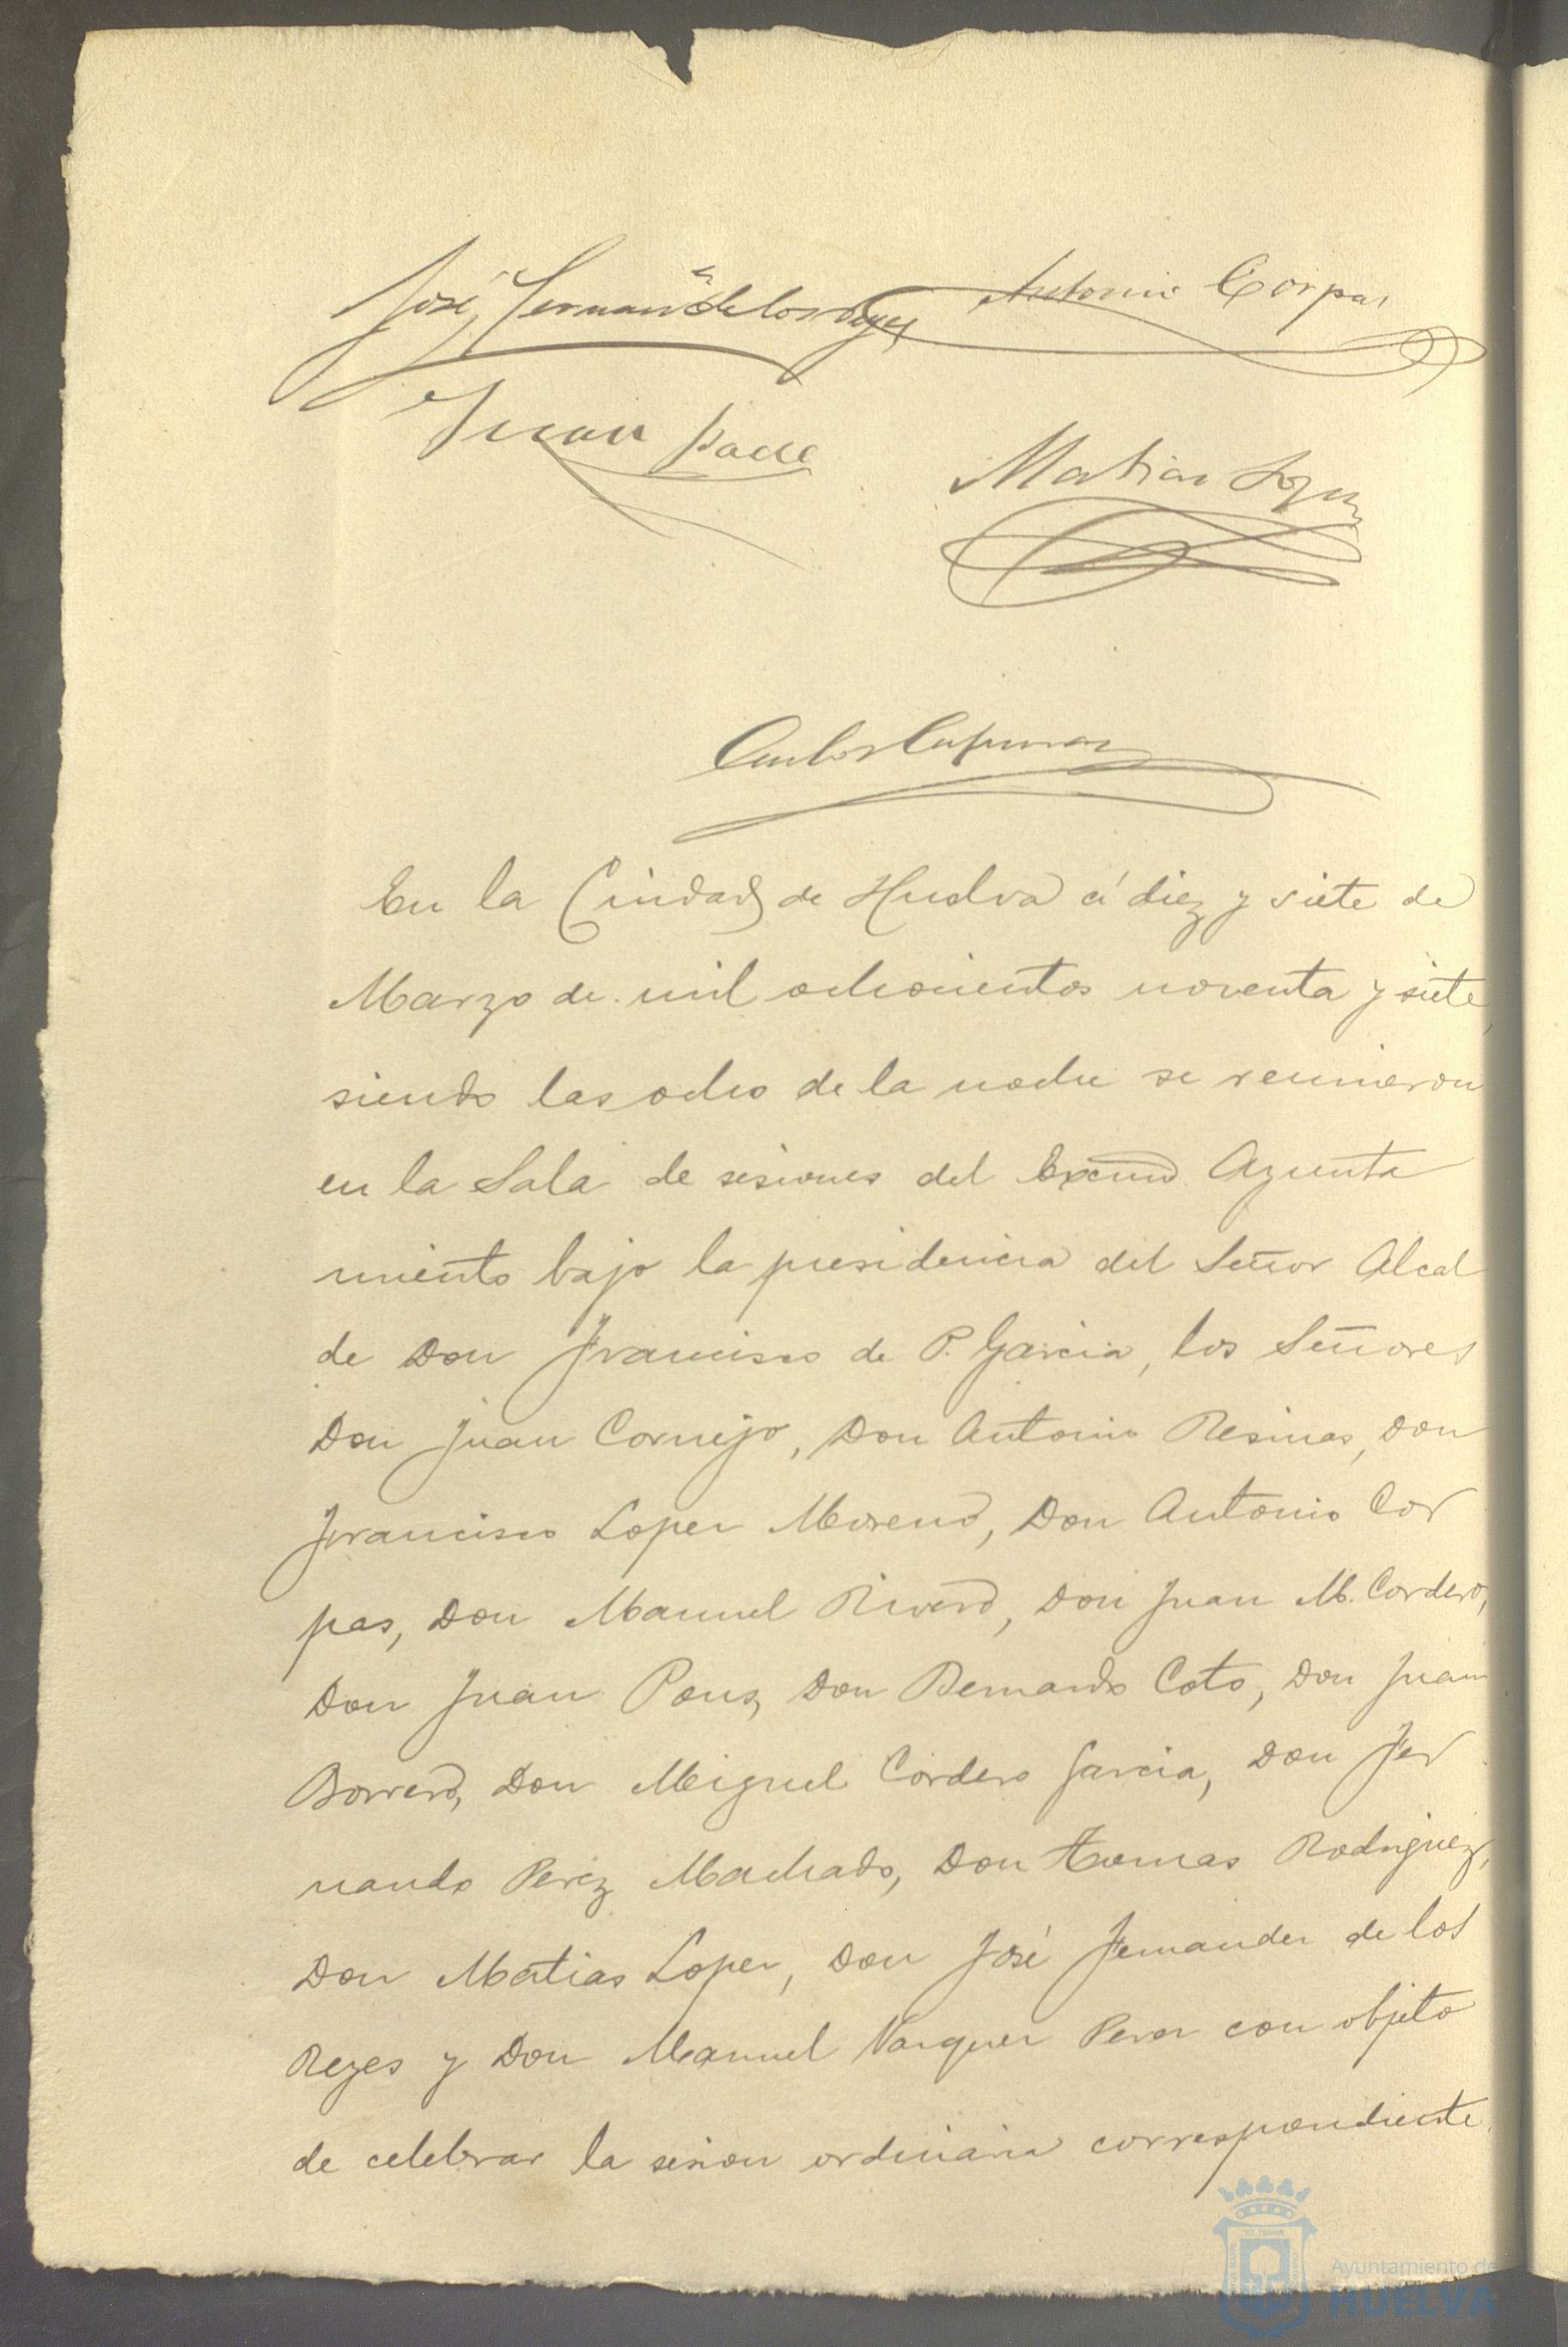 José Fernan^z de los Reyes Antonio Corpas
Juan
Matias Lopez
Carlos
En la Ciudad de Huelva á diez y siete de
Marzo de mil ochocientos noventa y siete,
siendo las ocho de la noche se reunieron
en la Sala de sesiones del Excmo Ayunta
miento bajo la presidencia del Señor Alcal
de Don Francisco de P. Garcia, los Señores
Don Juan Cornejo, Don Antonio Resinas, Don
Francisco Lopez Moreno, Don Antonio Cor
pas, Don Manuel Rivero, Don Juan M. Cordero,
Don Juan Pons, Don Bernardo Coto, Don Juan
Borrero, Don Miguel Cordero Garcia, Don Fer
nando Perez Machado, Don Tomas Rodriguez,
Don Matias Lopez, Don José Fernandez de los
Reyes y Don Manuel Vazquez Perez con objeto
de celebrar la sesion ordinaria correspondiente.
Ayuntamiento de
HUELVA